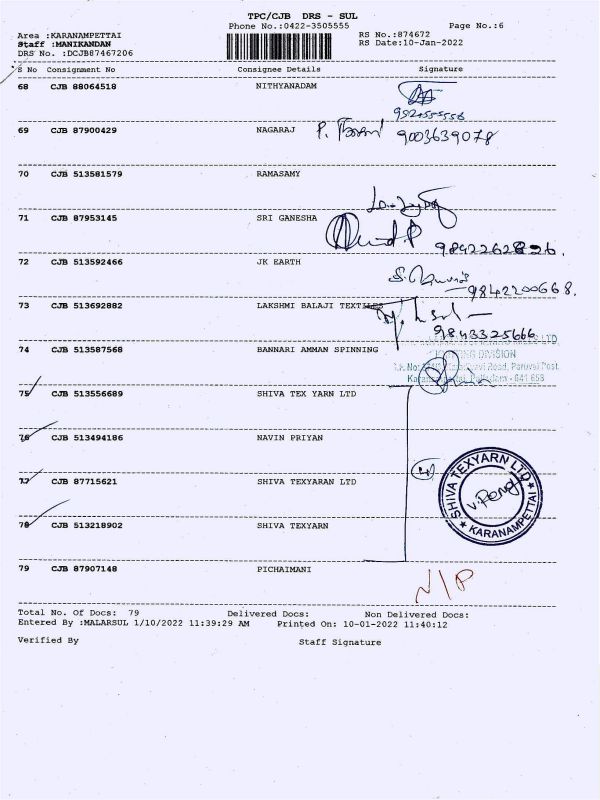 TPC/CJB DRS - SUL
Phone No.:0422-3505555 Page No.:6
Area :KARANAMPETTAI RS No.:874672
Staff :MANIKANDAN RS Date:10-Jan-2022
DRS No. :DCJB87467206
S No Consignment No Consignee Details Signature
68 CJB 88064518 NITHYANADAM
69 CJB 87900429 NAGARAJ P. 9003639078
70 CJB 513581579 RAMASAMY
71 CJB 87953145 SRI GANESHA
9842262826.
72 CJB 513592466 JK EARTH
9842200668.
73 CJB 513692882 LAKSHMI BALAJI TEXTILES
9843325666
74 CJB 513587568 BANNARI AMMAN SPINNING
DIVISION
Road, Paruvai Post,
Karanampettai, Palladam - 641 658
75 CJB 513556689 SHIVA TEX YARN LTD
76 CJB 513494186 NAVIN PRIYAN
77 CJB 87715621 SHIVA TEXYARAN LTD
4
SHIVA TEXYARN LTD
KARANAMPETTAI
78 CJB 513218902 SHIVA TEXYARN
79 CJB 87907148 PICHAIMANI
N/P
Total No. Of Docs: 79 Delivered Docs: Non Delivered Docs:
Entered By :MALARSUL 1/10/2022 11:39:29 AM Printed On: 10-01-2022 11:40:12
Verified By Staff Signature